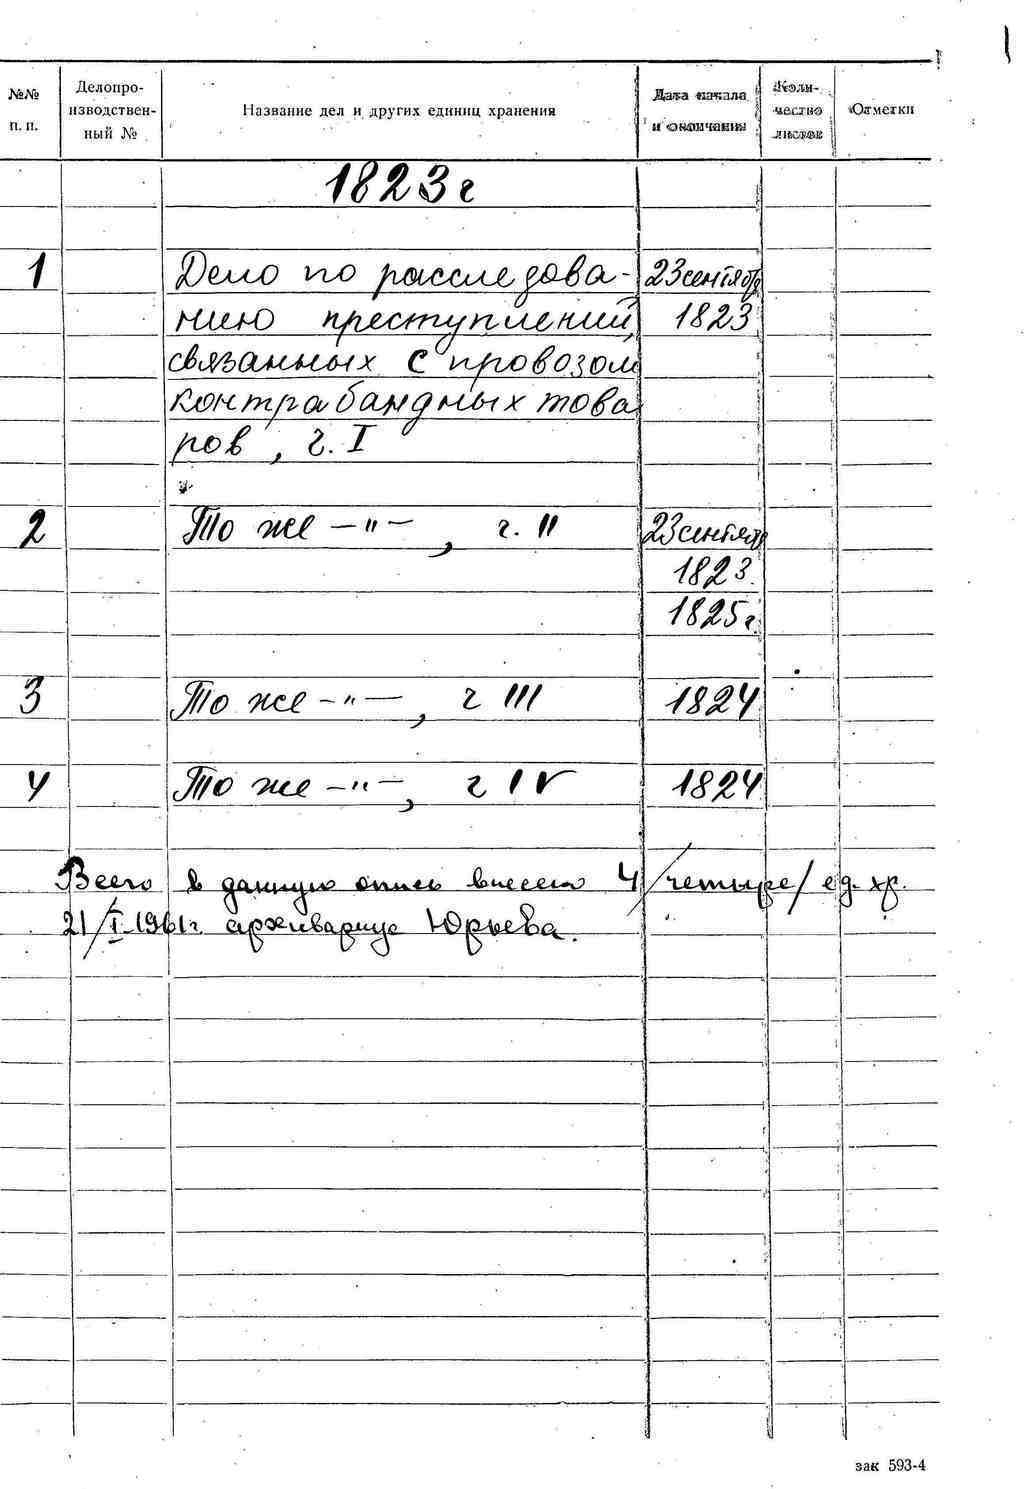 №№ п. п. | Делопро-изводствен-ный № | Название дел и других единиц хранения | Дата начала и окончания | Коли-чество листов | Отметки
1823 г
1 | Дело по расследова- | 23 сентября
нию преступлений, | 1823
связанных с провозом
контрабандных това
ров, ч. I
2 | То же —"— , ч. II | 23 сентября
1823
1825 г.
3 | То же —"— , ч III | 1824
4 | То же —"— , ч IV | 1824
Всего в данную опись внесено 4 /четыре/ ед. хр.
21/I-1961г. архивариус Юрьева.
зак 593-4